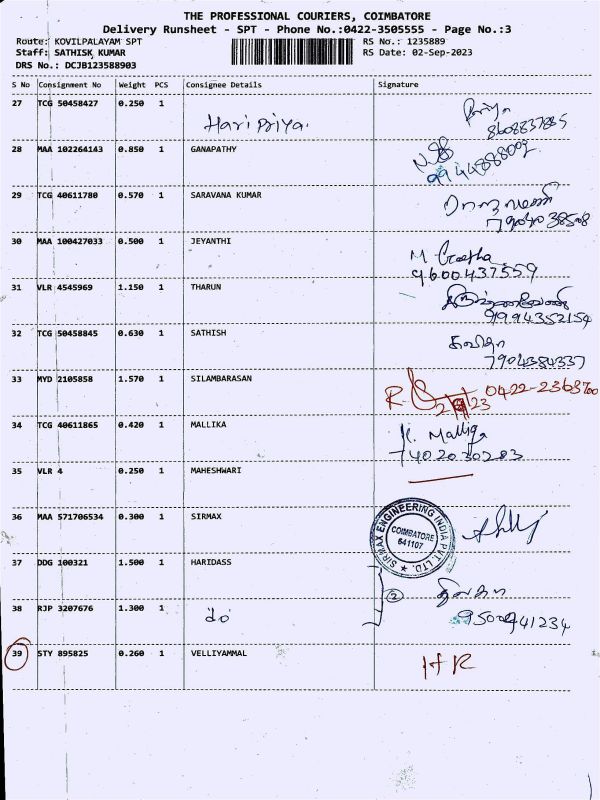 THE PROFESSIONAL COURIERS, COIMBATORE
Delivery Runsheet - SPT - Phone No.:0422-3505555 - Page No.:3
Route: KOVILPALAYAM SPT RS No.: 1235889
Staff: SATHISK KUMAR RS Date: 02-Sep-2023
DRS No.: DCJB123588903
S No Consignment No Weight PCS Consignee Details Signature
27 TCG 50458427 0.250 1 Hari Priya. Priya
8608837885
28 MAA 102264143 0.850 1 GANAPATHY
29 TCG 40611780 0.570 1 SARAVANA KUMAR
30 MAA 100427033 0.500 1 JEYANTHI M Geetha
9600437559
31 VLR 4545969 1.150 1 THARUN
9994352154
32 TCG 50458845 0.630 1 SATHISH கவிதா
7904384337
33 MYD 2105858 1.570 1 SILAMBARASAN
34 TCG 40611865 0.420 1 MALLIKA K. Malliga
7402030203
35 VLR 4 0.250 1 MAHESHWARI
36 MAA 571706534 0.300 1 SIRMAX
SIRMAX ENGINEERING INDIA PVT. LTD.
COIMBATORE
641107
37 DDG 100321 1.500 1 HARIDASS
38 RJP 3207676 1.300 1 do 2
39 STY 895825 0.260 1 VELLIYAMMAL